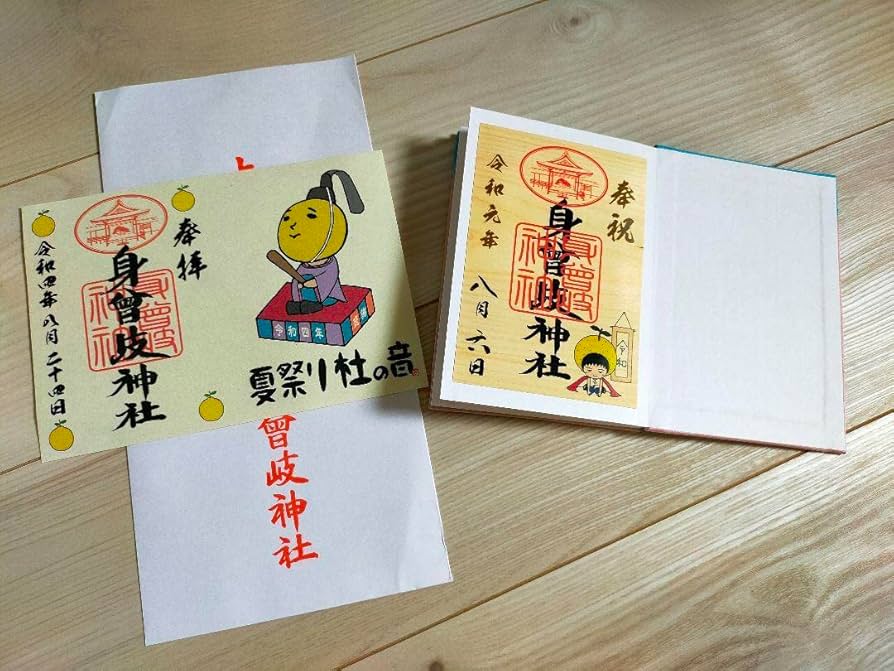 奉拝
身曾岐神社
令和四年八月二十四日
令和四年
夏祭り杜の音
曾岐神社
奉祝
身曾岐神社
令和元年 八月六日
令和